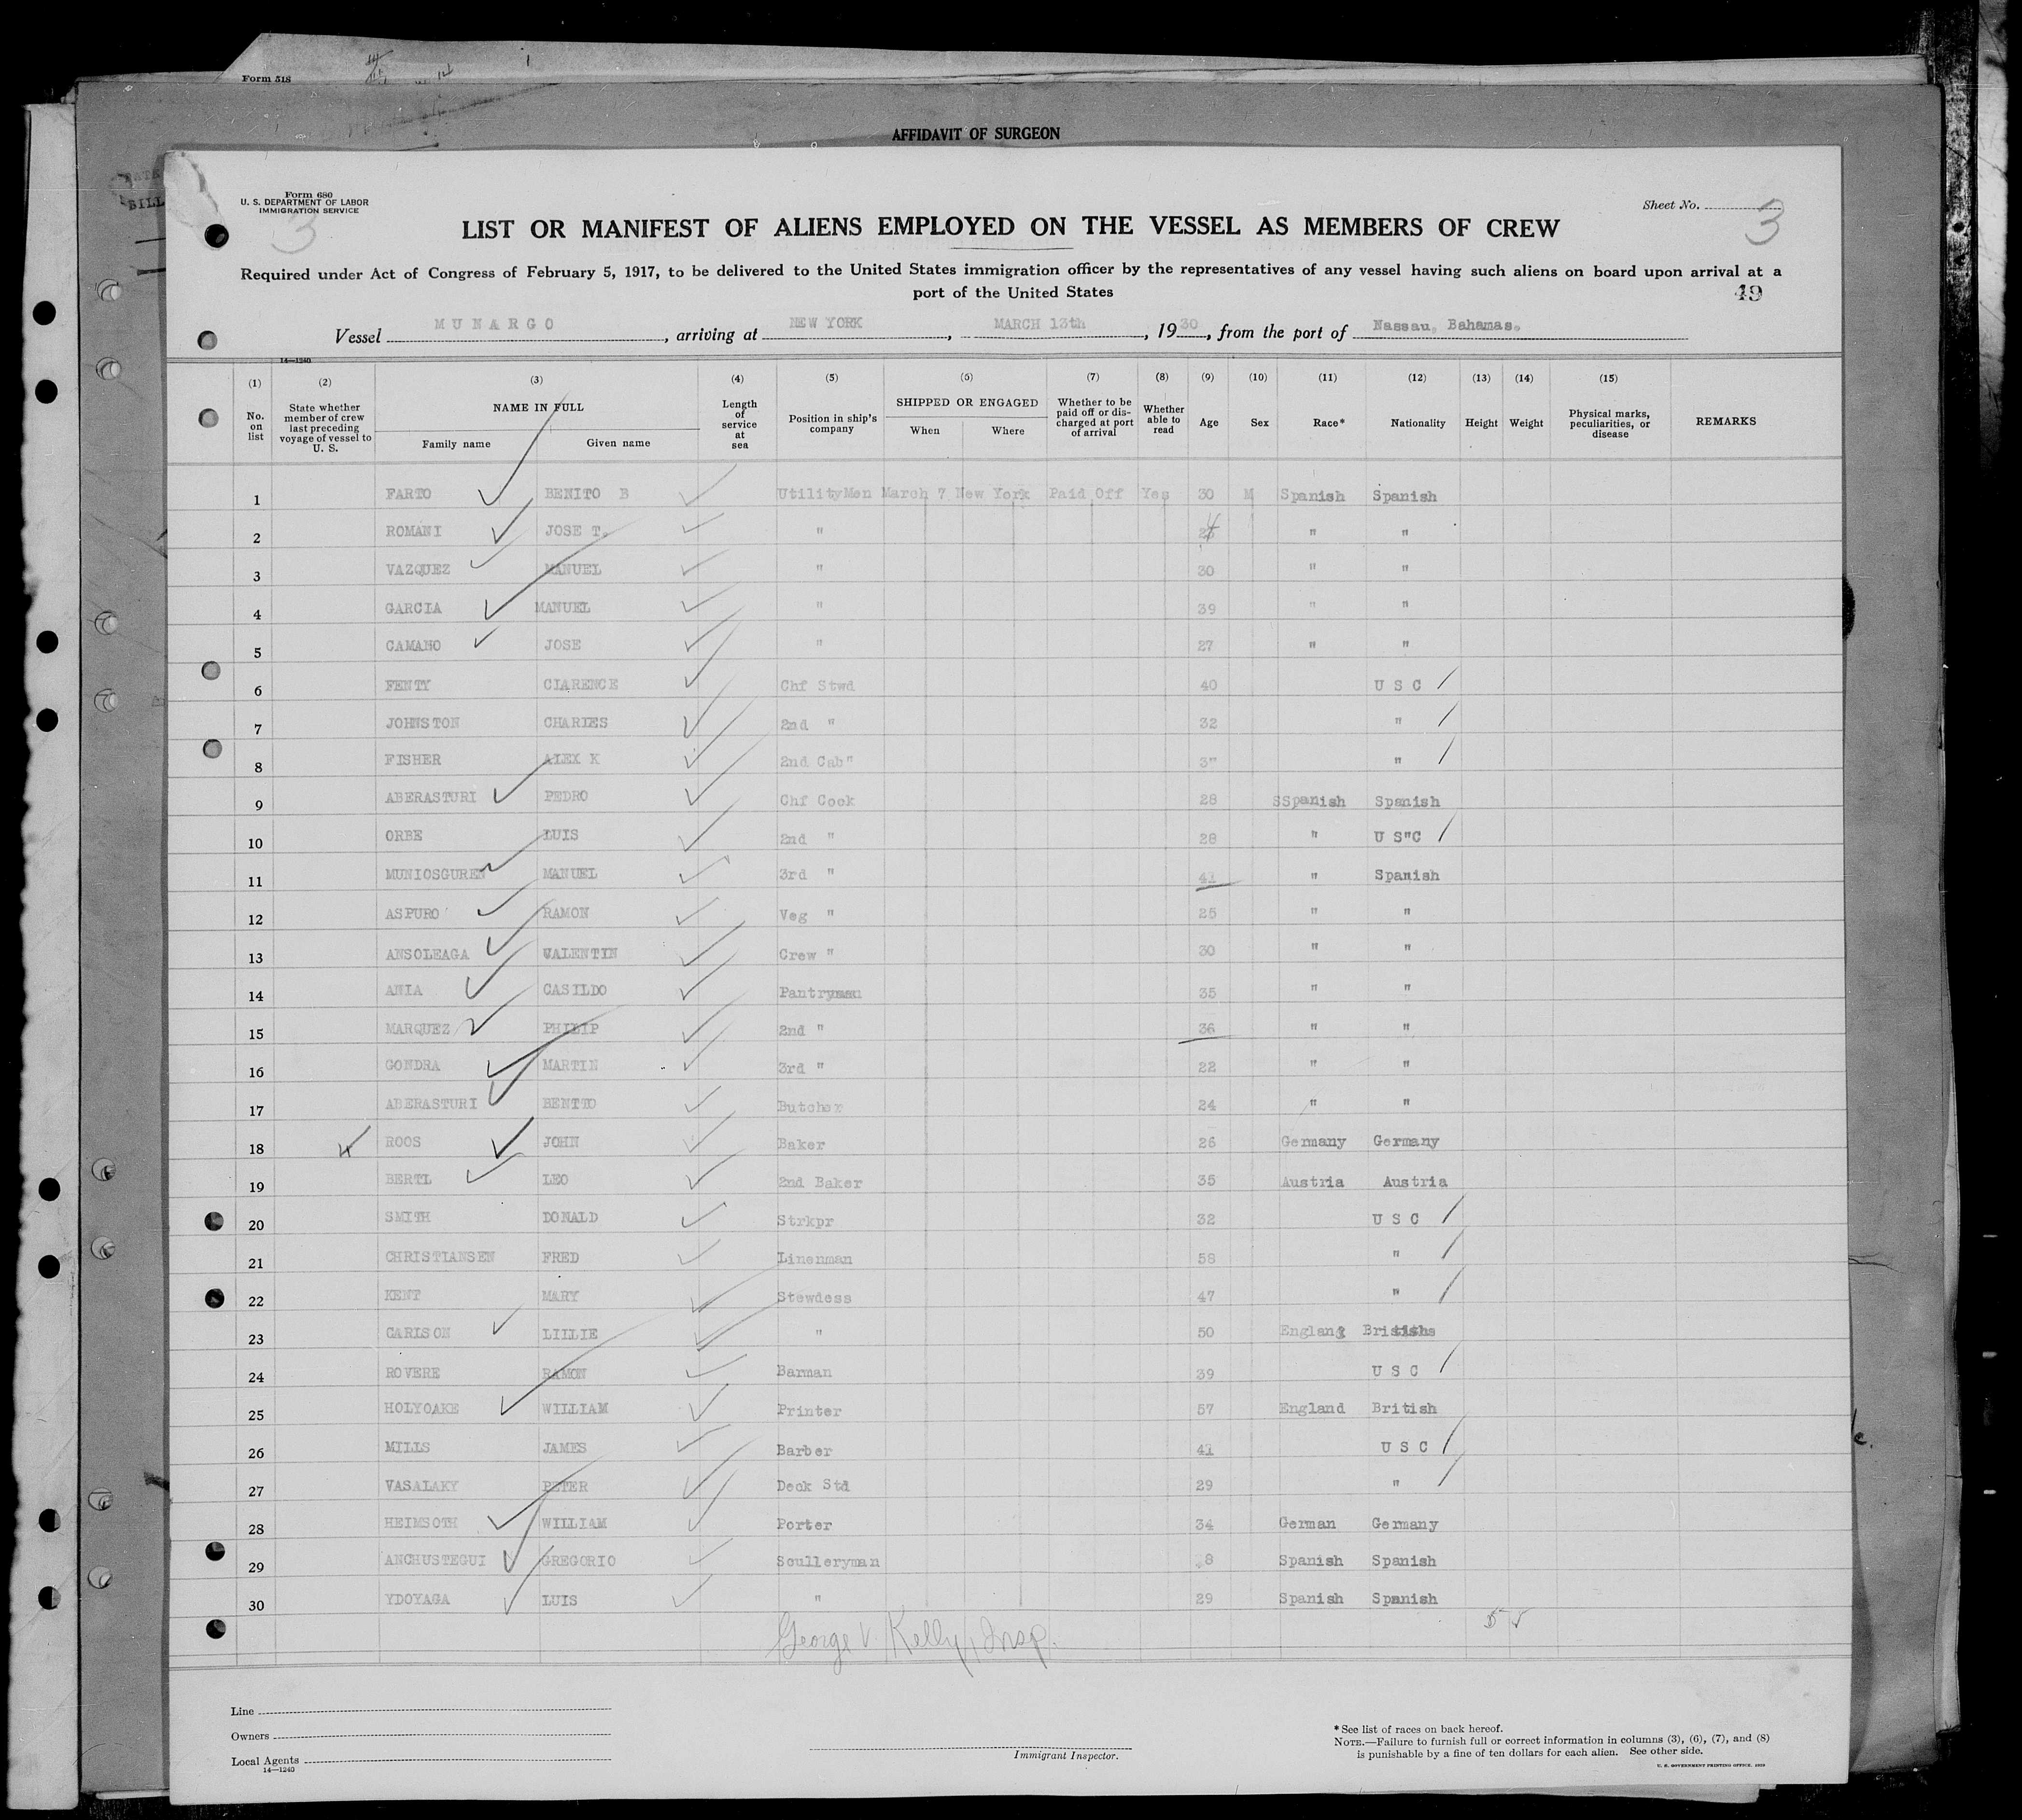 Form 518
AFFIDAVIT OF SURGEON
Form 680
U. S. DEPARTMENT OF LABOR
IMMIGRATION SERVICE
3
Sheet No. 3
LIST OR MANIFEST OF ALIENS EMPLOYED ON THE VESSEL AS MEMBERS OF CREW
Required under Act of Congress of February 5, 1917, to be delivered to the United States immigration officer by the representatives of any vessel having such aliens on board upon arrival at a
port of the United States
49
Vessel MUNARGO, arriving at NEW YORK, MARCH 13th, 1930, from the port of Nassau, Bahamas.
14—1240
(1) (2) (3) (4) (5) (6) (7) (8) (9) (10) (11) (12) (13) (14) (15)
No. on list State whether member of crew last preceding voyage of vessel to U. S. NAME IN FULL Family name Given name Length of service at sea Position in ship's company SHIPPED OR ENGAGED When Where Whether to be paid off or discharged at port of arrival Whether able to read Age Sex Race* Nationality Height Weight Physical marks, peculiarities, or disease REMARKS
1 FARTO BENITO B UtilityMen March 7 New York Paid Off Yes 30 M Spanish Spanish
2 ROMANI JOSE T. " " "
3 VAZQUEZ MANUEL " 30 " "
4 GARCIA MANUEL " 39 " "
5 CAMANO JOSE " 27 " "
6 FENTY CLARENCE Chf Stwd 40 U S C
7 JOHNSTON CHARLES 2nd " 32 "
8 FISHER ALEX K 2nd Cab" 3" "
9 ABERASTURI PEDRO Chf Cook 28 SSpanish Spanish
10 ORBE LUIS 2nd " 28 " U S"C
11 MUNIOSGUREN MANUEL 3rd " 41 " Spanish
12 ASPURO RAMON Veg " 25 " "
13 ANSOLEAGA VALENTIN Crew " 30 " "
14 ANIA CASILDO Pantryman 35 " "
15 MARQUEZ PHILIP 2nd " 36 " "
16 GONDRA MARTIN 3rd " 22 " "
17 ABERASTURI BENITO Butcher 24 " "
18 ROOS JOHN Baker 26 Germany Germany
19 BERTL LEO 2nd Baker 35 Austria Austria
20 SMITH DONALD Strkpr 32 U S C
21 CHRISTIANSEN FRED Linenman 58 "
22 KENT MARY Stewdess 47 "
23 CARLSON LILLIE " 50 England British
24 ROVERE RAMON Barman 39 U S C
25 HOLYOAKE WILLIAM Printer 57 England British
26 MILLS JAMES Barber 41 U S C
27 VASALAKY PETER Deck Std 29 "
28 HEIMSOTH WILLIAM Porter 34 German Germany
29 ANCHUSTEGUI GREGORIO Sculleryman 8 Spanish Spanish
30 YDOYAGA LUIS " 29 Spanish Spanish
George V. Kelly, Insp.
Line
Owners
Local Agents
14—1240
Immigrant Inspector.
* See list of races on back hereof.
NOTE.—Failure to furnish full or correct information in columns (3), (6), (7), and (8)
is punishable by a fine of ten dollars for each alien. See other side.
U. S. GOVERNMENT PRINTING OFFICE. 1929